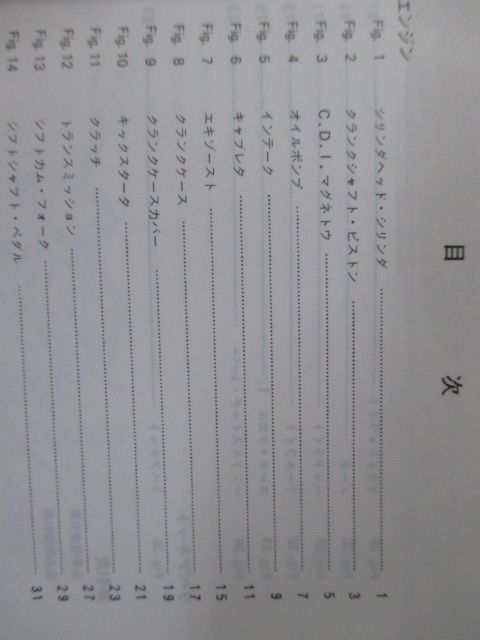 目次
エンジン
Fig. 1 シリンダヘッド・シリンダ 1
Fig. 2 クランクシャフト・ピストン 3
Fig. 3 C.D.I.マグネトウ 5
Fig. 4 オイルポンプ 7
Fig. 5 インテーク 9
Fig. 6 キャブレタ 11
Fig. 7 エキゾースト 15
Fig. 8 クランクケース 17
Fig. 9 クランクケースカバー 19
Fig. 10 キックスタータ 21
Fig. 11 クラッチ 23
Fig. 12 トランスミッション 27
Fig. 13 シフトカム・フォーク 29
Fig. 14 シフトシャフト・ペダル 31